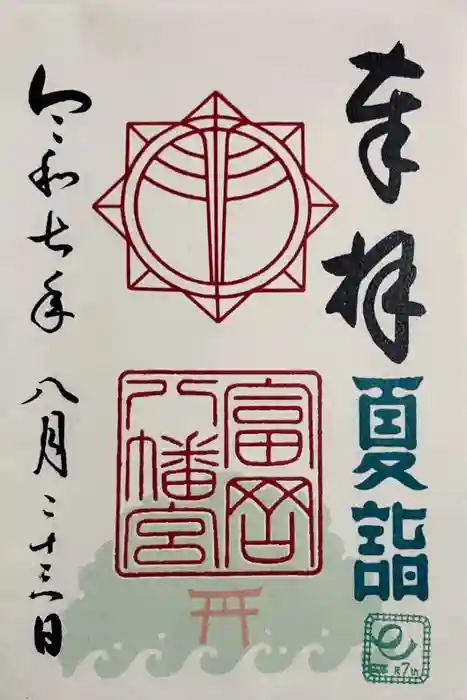 奉拝
夏詣
富岡
八幡宮
令和七年 八月二十三日
7th